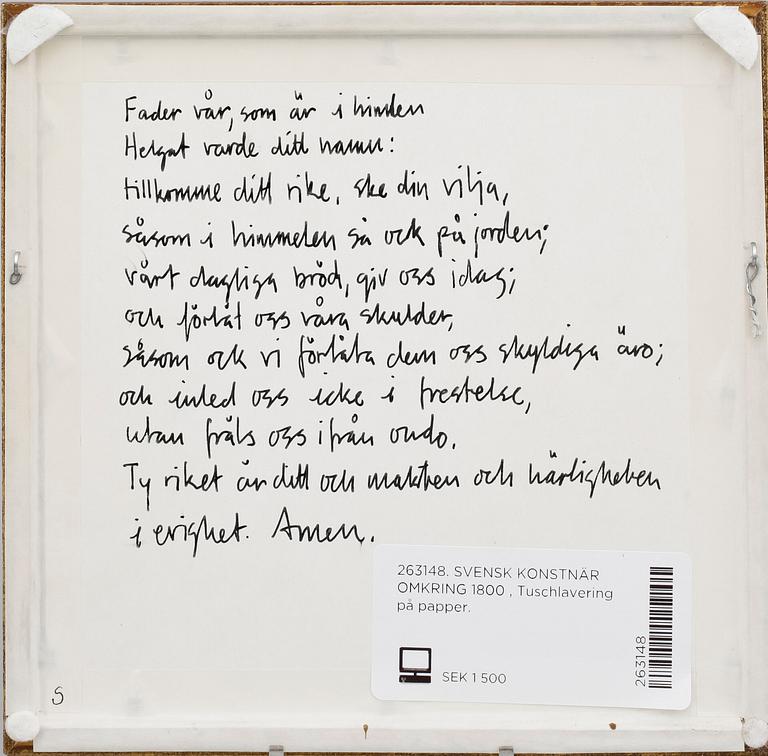 Fader vår, som är i himlen
Helgat varde ditt namn:
tillkomme ditt rike, ske din vilja,
såsom i himmelen så ock på jorden;
vårt dagliga bröd, giv oss idag;
och förlåt oss våra skulder,
såsom ock vi förlåta dem oss skyldiga äro;
och inled oss icke i frestelse,
utan fräls oss ifrån ondo.
Ty riket är ditt och makten och härligheten
i evighet. Amen.
263148. SVENSK KONSTNÄR
OMKRING 1800 , Tuschlavering
på papper.
SEK 1 500
263148
S